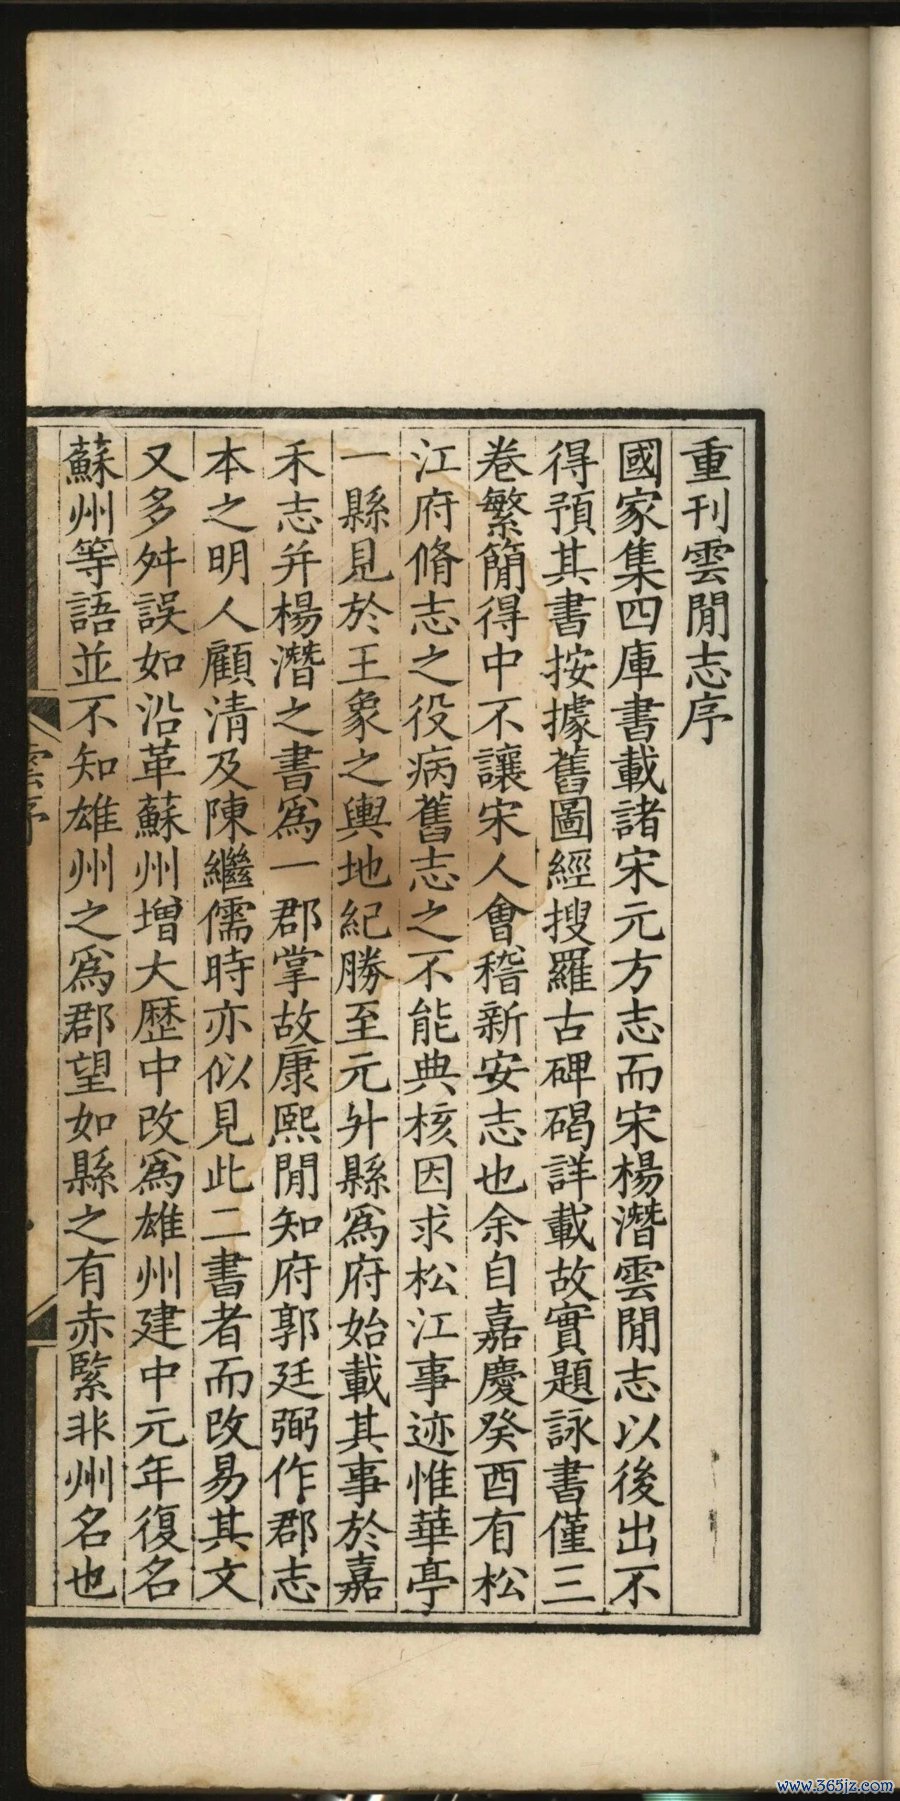 重刊雲閒志序
國家集四庫書載諸宋元方志而宋楊潛雲閒志以後出不
得預其書按據舊圖經搜羅古碑碣詳載故實題詠書僅三
卷繁簡得中不讓宋人會稽新安志也余自嘉慶癸酉有松
江府脩志之役病舊志之不能典核因求松江事迹惟華亭
一縣見於王象之輿地紀勝至元升縣爲府始載其事於嘉
禾志并楊潛之書爲一郡掌故康熙閒知府郭廷弼作郡志
本之明人顧清及陳繼儒時亦似見此二書者而改易其文
又多舛誤如沿革蘇州增大歷中改爲雄州建中元年復名
蘇州等語並不知雄州之爲郡望如縣之有赤緊非州名也
雲序
www.365jz.com